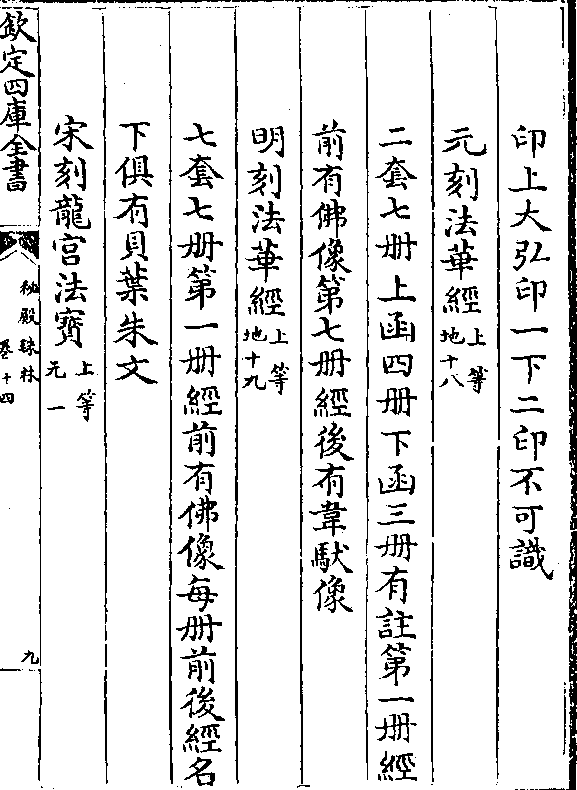 印上大弘印一下二印不可識
元刻法華經上等地十八
二套七册上函四册下函三册有註第一册經
前有佛像第七册經後有韋馱像
明刻法華經上等地十九
七套七册第一册經前有佛像每册前後經名
下俱有貝葉朱文
宋刻龍宫法寳上等元一
欽定四庫全書
秘殿珠林
卷十四
九